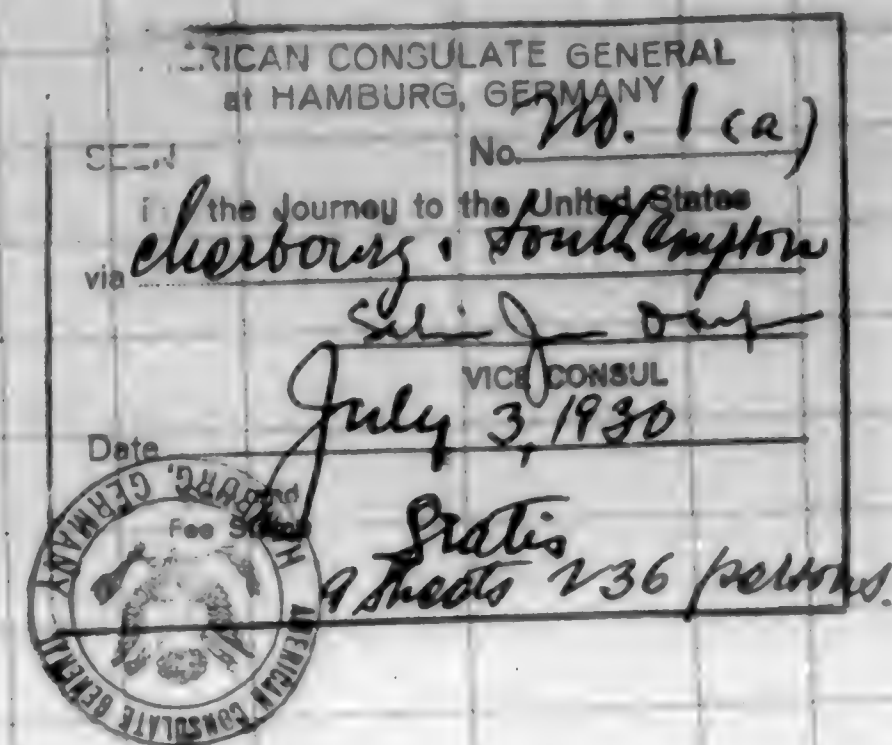 RICAN CONSULATE GENERAL
at HAMBURG, GERMANY
SEEN No. No. 1 (a)
the Journey to the United States
via Cherbourg, Southampton
VICE CONSUL
Date July 3, 1930
Fee
Gratis
9 sheets 236 persons.
AMERICAN CONSULATE GENERAL HAMBURG, GERMANY